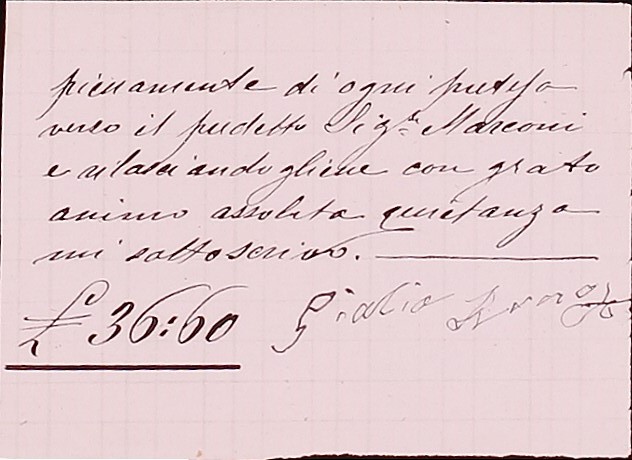 pienamente di ogni pretesa
verso il predetto Sigr. Marconi
e rilasciandogliene con grato
animo assoluta quietanza
mi sottoscrivo.
£ 36:60 Gialio